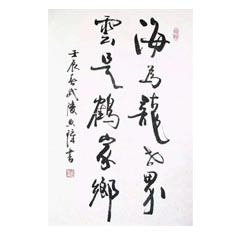 海為龍世界
雲是鶴家鄉
壬辰春武陵
書